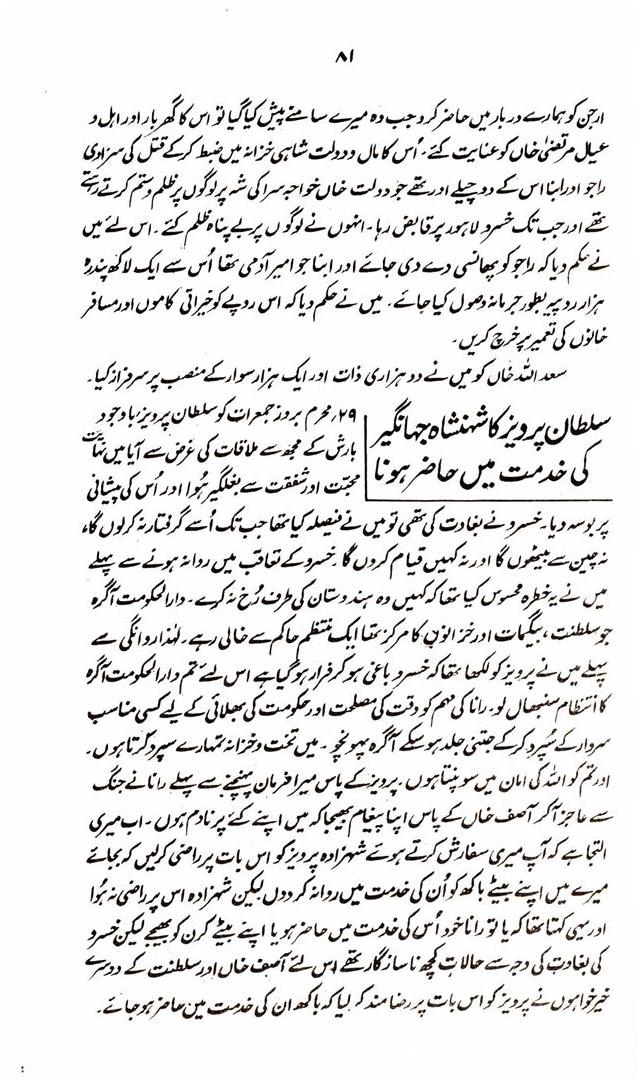 ۸۱
ارجن کو ہمارے دربار میں حاضر کرو جب وہ میرے سامنے پیش کیا گیا تو اس کا گھر بار اور اہل و
عیال مرتضیٰ خاں کو عنایت کئے۔ اُس کا مال و دولت شاہی خزانہ میں ضبط کر کے قتل کی سزا دی
راجو اور ابنا اس کے دو چیلے اور تھے جو دولت خاں خواجہ سرا کی شہ پر لوگوں پر ظلم و ستم کرتے رہتے
تھے اور جب تک خسرو لاہور پر قابض رہا۔ انہوں نے لوگوں پر بے پناہ ظلم کئے۔ اس لئے میں
نے حکم دیا کہ راجو کو پھانسی دے دی جائے اور ابنا جو امیر آدمی تھا اُس سے ایک لاکھ پندرہ
ہزار روپیہ بطور جرمانہ وصول کیا جائے۔ میں نے حکم دیا کہ اس روپے کو خیراتی کاموں اور مسافر
خانوں کی تعمیر پر خرچ کریں۔
سعد اللہ خاں کو میں نے دو ہزاری ذات اور ایک ہزار سوار کے منصب پر سرفراز کیا۔
سلطان پرویز کا شہنشاہ جہانگیر
کی خدمت میں حاضر ہونا
۲۹؍ محرم بروز جمعرات کو سلطان پرویز باوجود
بارش کے مجھ سے ملاقات کی غرض سے آیا میں نہایت
محبت اور شفقت سے بغلگیر ہُوا اور اُس کی پیشانی
پر بوسہ دیا۔ خسرو نے بغاوت کی تھی تو میں نے فیصلہ کیا تھا جب تک اُسے گرفتار نہ کرلوں گا،
نہ چین سے بیٹھوں گا اور نہ کہیں قیام کروں گا۔ خسرو کے تعاقب میں روانہ ہونے سے پہلے
میں نے یہ خطرہ محسوس کیا تھا کہ کہیں وہ ہندوستان کی طرف رُخ نہ کرے۔ دارالحکومت آگرہ
جو سلطنت، بیگمات اور خزانوں کا مرکز تھا ایک منتظم حاکم سے خالی رہے۔ لہٰذا روانگی سے
پہلے میں نے پرویز کو لکھا تھا کہ خسرو باغی ہو کر فرار ہو گیا ہے اس لئے تم دارالحکومت آگرہ
کا انتظام سنبھال لو۔ رانا کی مہم کو وقت کی مصلحت اور حکومت کی بھلائی کے لیے کسی مناسب
سردار کے سُپرد کر کے جتنی جلد ہو سکے آگرہ پہونچو۔ میں تخت و خزانہ تمہارے سپرد کرتا ہوں۔
اور تم کو اللہ کی امان میں سونپتا ہوں۔ پرویز کے پاس میرا فرمان پہنچنے سے پہلے رانا نے جنگ
سے عاجز آکر آصف خاں کے پاس اپنا پیغام بھیجا کہ میں اپنے کئے پر نادم ہوں۔ اب میری
التجا ہے کہ آپ میری سفارش کرتے ہوئے شہزادہ پرویز کو اس بات پر راضی کرلیں کہ بجائے
میرے میں اپنے بیٹے باکھ کو اُن کی خدمت میں روانہ کر دوں لیکن شہزادہ اس پر راضی نہ ہُوا
اور یہی کہتا تھا کہ یا تو رانا خود اُس کی خدمت میں حاضر ہو یا اپنے بیٹے کرن کو بھیجے لیکن خسرو
کی بغاوت کی وجہ سے حالات کچھ ناساز گار تھے اس لئے آصف خاں اور سلطنت کے دوسرے
خیرخواہوں نے پرویز کو اس بات پر رضا مند کر لیا کہ باکھ ان کی خدمت میں حاضر ہو جائے۔